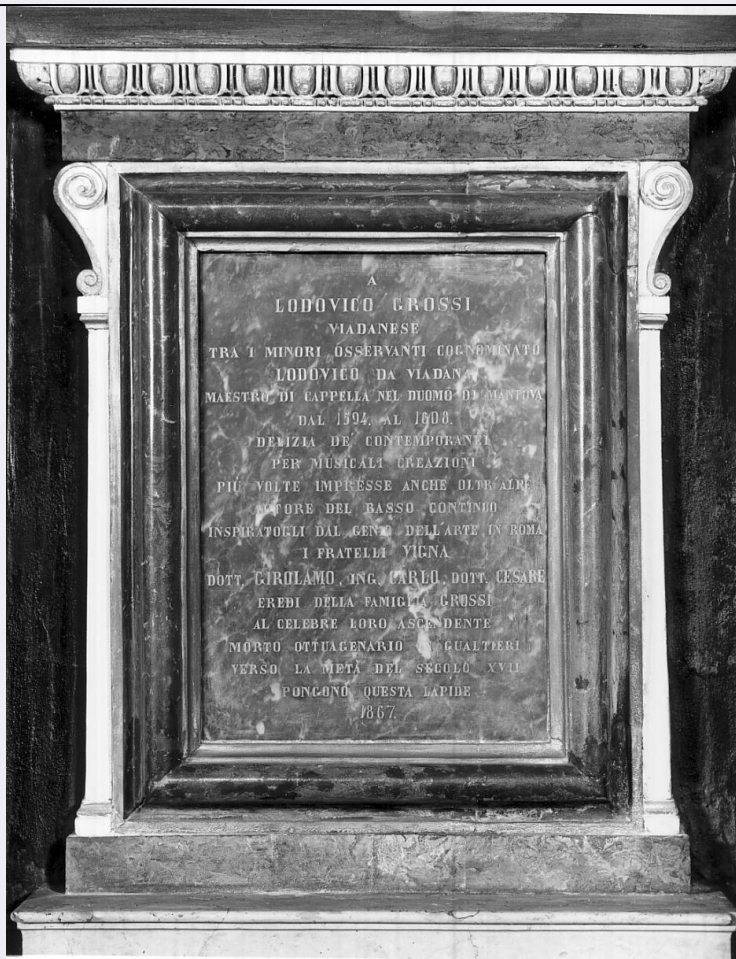 A
LODOVICO GROSSI
VIADANESE
TRA I MINORI OSSERVANTI COGNOMINATO
LODOVICO DA VIADANA
MAESTRO DI CAPPELLA NEL DUOMO DI MANTOVA
DAL 1594. AL 1608.
DELIZIA DE' CONTEMPORANEI
PER MUSICALI CREAZIONI
PIÙ VOLTE IMPRESSE ANCHE OLTR'ALPE
DEL BASSO CONTINUO
INSPIRATOGLI DAL GENIO DELL'ARTE IN ROMA
I FRATELLI VIGNA
DOTT. GIROLAMO, ING. CARLO, DOTT. CESARE
EREDI DELLA FAMIGLIA GROSSI
AL CELEBRE LORO ASCENDENTE
MORTO OTTUAGENARIO IN GUALTIERI
VERSO LA METÀ DEL SECOLO XVII
PONGONO QUESTA LAPIDE
1867.